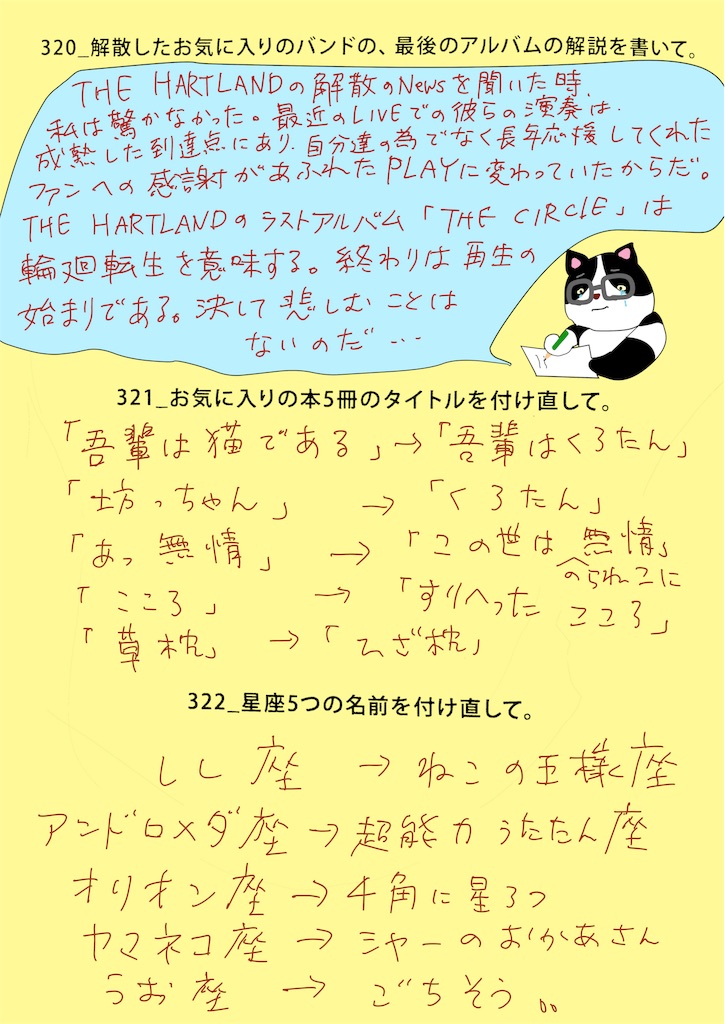 320_解散したお気に入りのバンドの、最後のアルバムの解説を書いて。
THE HARTLANDの解散のNewsを聞いた時、
私は驚かなかった。最近のLIVEでの彼らの演奏は、
成熟した到達点にあり、自分達の為でなく長年応援してくれた
ファンへの感謝があふれたPLAYに変わっていたからだ。
THE HARTLANDのラストアルバム「THE CIRCLE」は
輪廻転生を意味する。終わりは再生の
始まりである。決して悲しむことは
ないのだ…
321_お気に入りの本5冊のタイトルを付け直して。
「吾輩は猫である」→「吾輩はくろたん」
「坊っちゃん」→「くろたん」
「あゝ無情」→「この世は無情」
のられこに
「こころ」→「すりへったこころ」
「草枕」→「ひざ枕」
322_星座5つの名前を付け直して。
しし座→ねこの王様座
アンドロメダ座→超能力うたたん座
オリオン座→4角に星3つ
ヤマネコ座→シャーのおかあさん
うお座→ごちそう。。